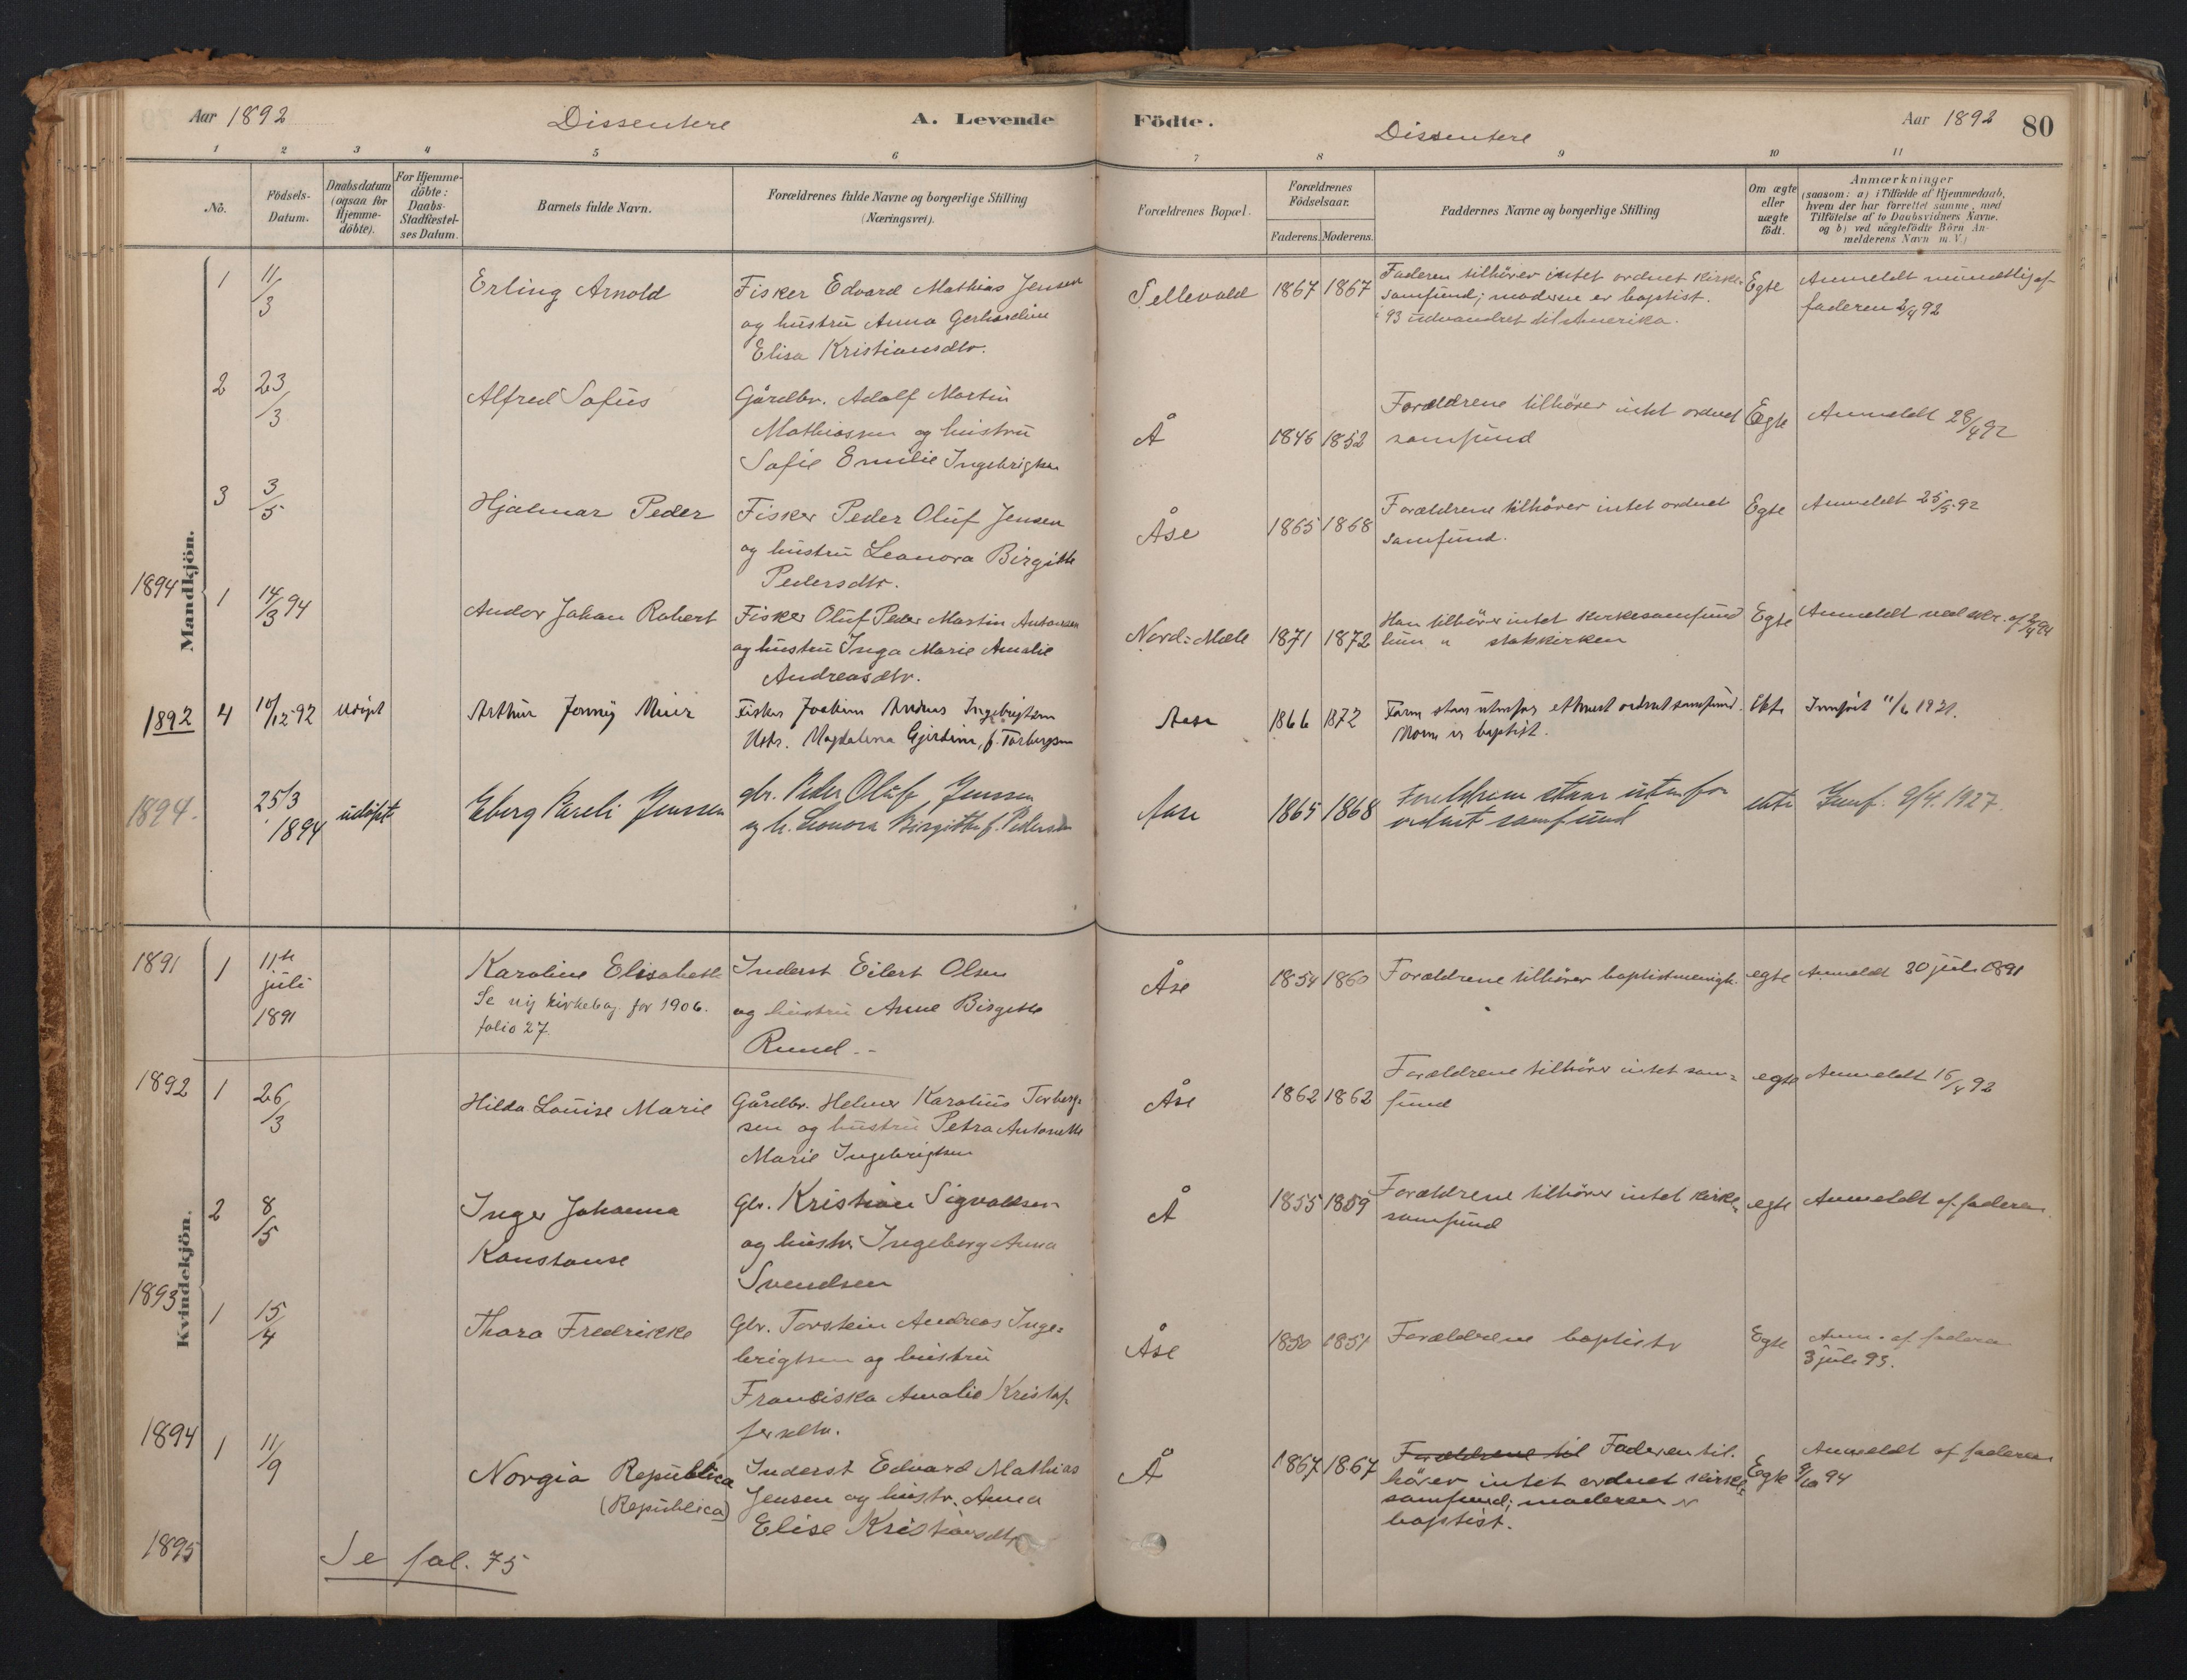 Aar 1892 Dissentere A. Levende Födte. Dissentere Aar 1892 80
1 2 3 4 5 6 7 8 9 10 11
No.
Födsels-
Datum.
Daabsdatum
(ogsaa for
Hjemme-
döbte).
For Hjemme-
döbte:
Daabs-
Stadfæstel-
ses Datum.
Barnets fulde Navn.
Forældrenes fulde Navne og borgerlige Stilling
(Næringsvei).
Forældrenes Bopæl.
Forældrenes
Födselsaar.
Faderens. Moderens.
Faddernes Navne og borgerlige Stilling
Om ægte
eller
uægte
födt.
Anmærkninger
(saasom: a) i Tilfælde af Hjemmedaab,
hvem der har forrettet samme, med
Tilföielse af to Daabsvidners Navne.
og b) ved uægtefödte Börn An-
melderens Navn m. V.)
Mandkjön.
1 11/3 Erling Arnold
Fisker Edvard Mathias Jensen
og hustru Anna Gerhardine
Elisa Kristiansdtr.
Sellevold 1867 1867
Faderen tilhører intet ordnet kirke-
samfund; moderen er baptist.
i 93 udvandret til Amerika.
Egte
Anmeldt mundtlig af
faderen 2/4 92
2 23/3 Alfred Sofus
Gårdbr. Adolf Martin
Mathiassen og hustru
Sofie Emilie Ingebrigtsen
Å 1846 1852
Forældrene tilhører intet ordnet
samfund
Egte Anmeldt 28/4 92
3 3/5 Hjalmar Peder
Fisker Peder Oluf Jensen
og hustru Leonora Birgitte
Pedersdtr.
Åse 1865 1868
Forældrene tilhører intet ordnet
samfund.
Egte Anmeldt 25/5 92
1894 1 14/3 94 Andor Johan Robert
Fisker Oluf Peder Martin Antonsen
og hustru Inga Marie Amalie
Andreasdtr.
Nord-Mæle 1871 1872
Han tilhører intet kirkesamfund
hun " statskirken
Egte Anmeldt ved skr. af 2/4 94
1892 4 10/12-92 Udøpt Arthur Jonny Muir
Fisker Joakim Andreas Ingebrigtsen
Hstr. Magdalena Gjertine, f. Torbergsen
Aase 1866 1872
Faren staar utenfor ethvert ordnet samfund.
Moren er baptist.
Ekte Innført 11/6 1921.
1894. 25/3
1894 udøpt Eberg Pareli Jenssen
gbr. Peder Oluf Jenssen
og h. Leonora Birgitte f. Pedersen
Aase 1865 1868
Foreldrene staar utenfor
ordnet samfund
ekte Innf. 9/4. 1927.
Kvindekjön.
1891 1 11te
juli
1891
Karoline Elisabeth
Se ny kirkebog for 1906.
folio 27.
Inderst Eilert Olsen
og hustru Anne Birgitte
Rund.-
Åse 1854 1860 Forældrene tilhører baptistmenigh. egte Anmeldt 30 juli 1891
1892 1 26/3 Hilda Louise Marie
Gårdbr. Helmer Karolius Torberg=
sen og hustru Petra Antonette
Marie Ingebrigtsen
Åse 1862 1862
Forældrene tilhører intet sam=
fund
egte Anmeldt 16/4 92
2 8/5 Inger Johanna
Konstanse
Gbr. Kristian Sigvaldsen
og hustr. Ingeborg Anna
Svendsen
Å 1855 1859
Forældrene tilhører intet kirke=
samfund
egte Anmeldt af faderen
1893 1 15/4 Thora Fredrikke
Gbr. Torstein Andreas Inge=
brigtsen og hustru
Franciska Amalie Kristof-
fersdtr.
Åse 1850 1851 Forældrene baptister Egte
Anm. af faderen
3 juli 93.
1894 1 11/9 Norgia Republica
(Republica)
Inderst Edvard Mathias
Jensen og hustr. Anna
Elise Kristiansdtr
Å 1867 1867
Forældrene til Faderen til.
hører intet ordnet kirke=
samfund; moderen er
baptist.
Egte
Anmeldt af faderen
9/10 94
1895 Se fol. 75